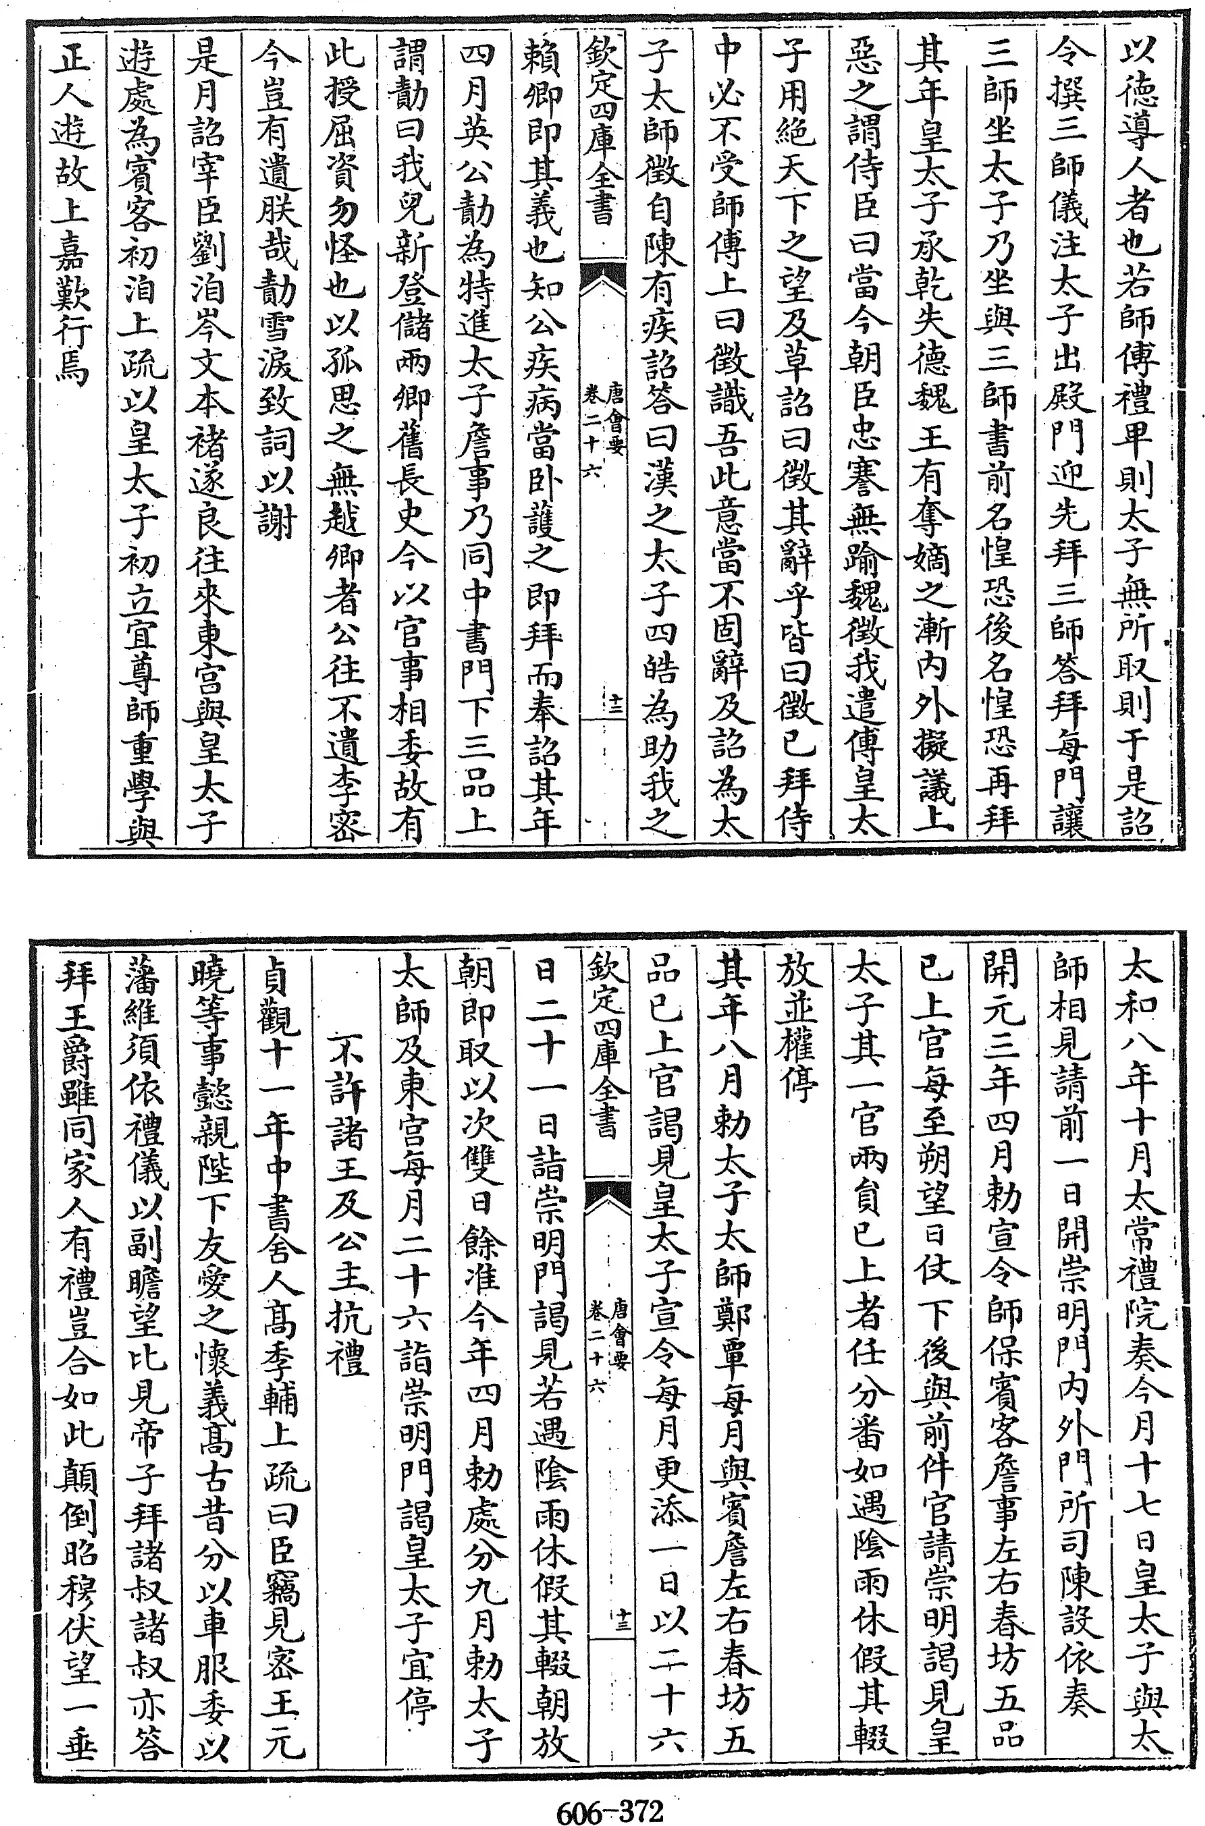 以德導人者也若師傅禮卑則太子無所取則于是詔
令撰三師儀注太子出殿門迎先拜三師答拜每門讓
三師坐太子乃坐與三師書前名惶恐後名惶恐再拜
其年皇太子承乾失德魏王有奪嫡之漸内外擬議上
惡之謂侍臣曰當今朝臣忠謇無踰魏徵我遣傅皇太
子用絕天下之望及草詔曰徵其辭乎皆曰徵已拜侍
中必不受師傅上曰徵識吾此意當不固辭及詔為太
子太師徵自陳有疾詔答曰漢之太子四皓為助我之
欽定四庫全書
唐會要
卷二十六
十三
賴卿即其義也知公疾病當卧護之即拜而奉詔其年
四月英公勣為特進太子詹事乃同中書門下三品上
謂勣曰我兒新登儲兩卿舊長史今以官事相委故有
此授屈資勿怪也以孤思之無越卿者公往不遺李密
今豈有遺朕哉勣雪淚致詞以謝
是月詔宰臣劉洎岑文本褚遂良往來東宮與皇太子
遊處為賓客初洎上疏以皇太子初立宜尊師重學與
正人遊故上嘉歎行焉
太和八年十月太常禮院奏今月十七日皇太子與太
師相見請前一日開崇明門内外門所司陳設依奏
開元三年四月勅宣令師保賓客詹事左右春坊五品
已上官每至朔望日仗下後與前件官請崇明謁見皇
太子其一官兩員已上者任分番如遇陰雨休假其輟
放並權停
其年八月勅太子太師鄭覃每月與賓詹左右春坊五
品已上官謁見皇太子宣令每月更添一日以二十六
欽定四庫全書
唐會要
卷二十六
十三
日二十一日詣崇明門謁見若遇陰雨休假其輟朝放
朝即取以次雙日餘准今年四月勅處分九月勅太子
太師及東宮每月二十六詣崇明門謁皇太子宜停
不許諸王及公主抗禮
貞觀十一年中書舍人髙季輔上疏曰臣竊見密王元
曉等事懿親陛下友愛之懷義髙古昔分以車服委以
藩維須依禮儀以副瞻望比見帝子拜諸叔諸叔亦答
拜王爵雖同家人有禮豈合如此顛倒昭穆伏望一垂
606-372